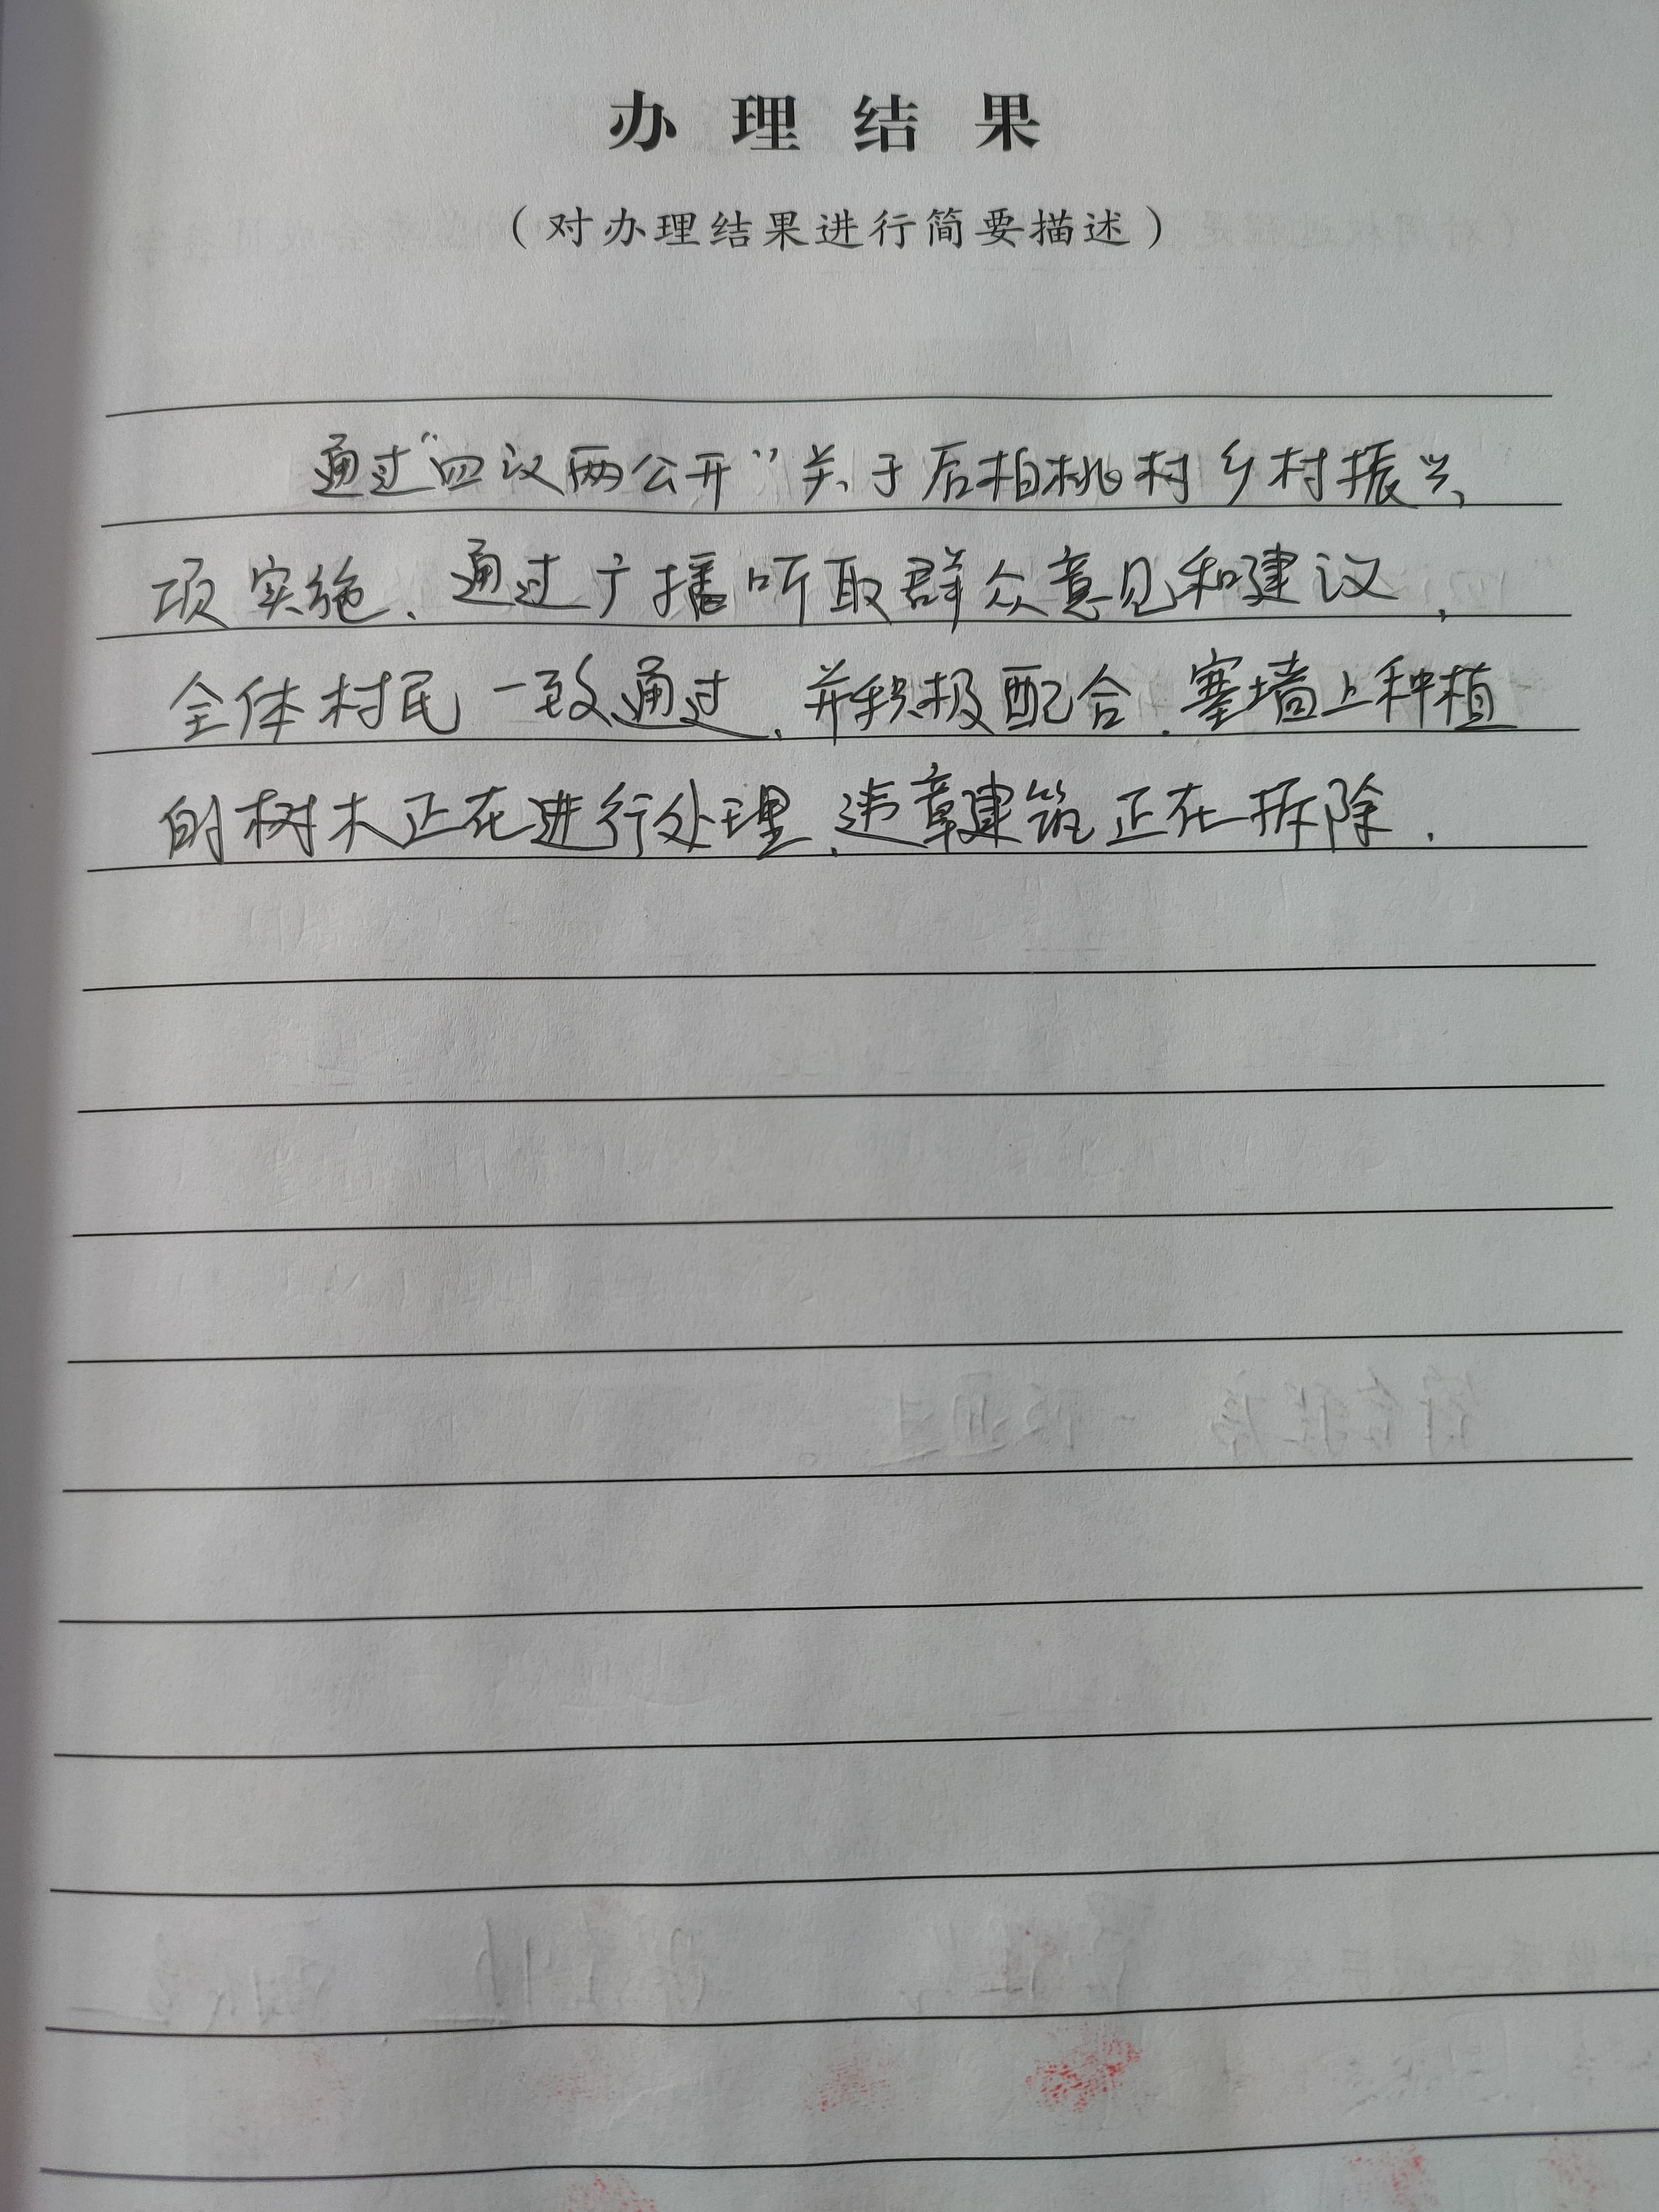 办理结果
（对办理结果进行简要描述）
通过“四议两公开”关于后柏桃村乡村振兴
项实施、通过广播听取群众意见和建议，
全体村民一致通过，并积极配合，寨墙上种植
的树木正在进行处理，违章建筑正在拆除．